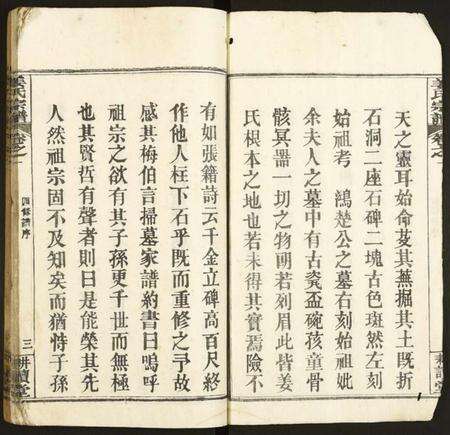 天之靈耳始命芟其蕪掘其土旣折
石洞二座石碑二塊古色斑然左刻
始祖考 鴻楚公之墓右刻始祖妣
余夫人之墓中有古瓷盃碗孩童骨
骸冥器一切之物朗若列眉此皆姜
氏根本之地也若未得其實焉險不
有如張籍詩云千金立碑高百尺終
作他人柱下石乎旣而重修之予故
感其梅伯言掃墓家譜約書曰嗚呼
祖宗之欲有其子孫更千世而無極
也其賢哲有聲者則曰是能榮其先
人然祖宗固不及知矣而猶恃子孫
姜氏宗譜
卷之一
四修譜序
三
耕讀堂